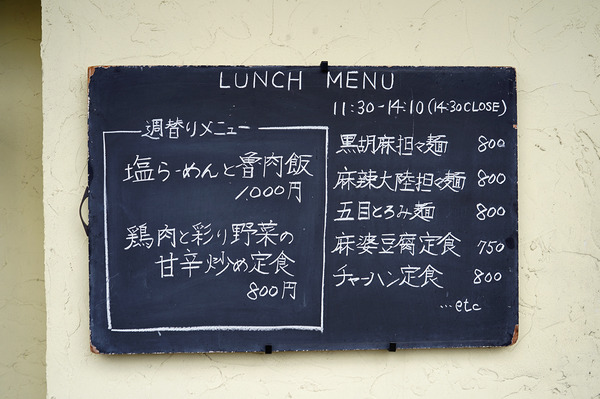 LUNCH MENU
11:30-14:10 (14:30CLOSE)
週替りメニュー
塩らーめんと魯肉飯
1,000円
鶏肉と彩り野菜の
甘辛炒め定食
800円
黒胡麻担々麺 800
麻辣大陸担々麺 800
五目とろみ麺 800
麻婆豆腐定食 750
チャーハン定食 800
...etc